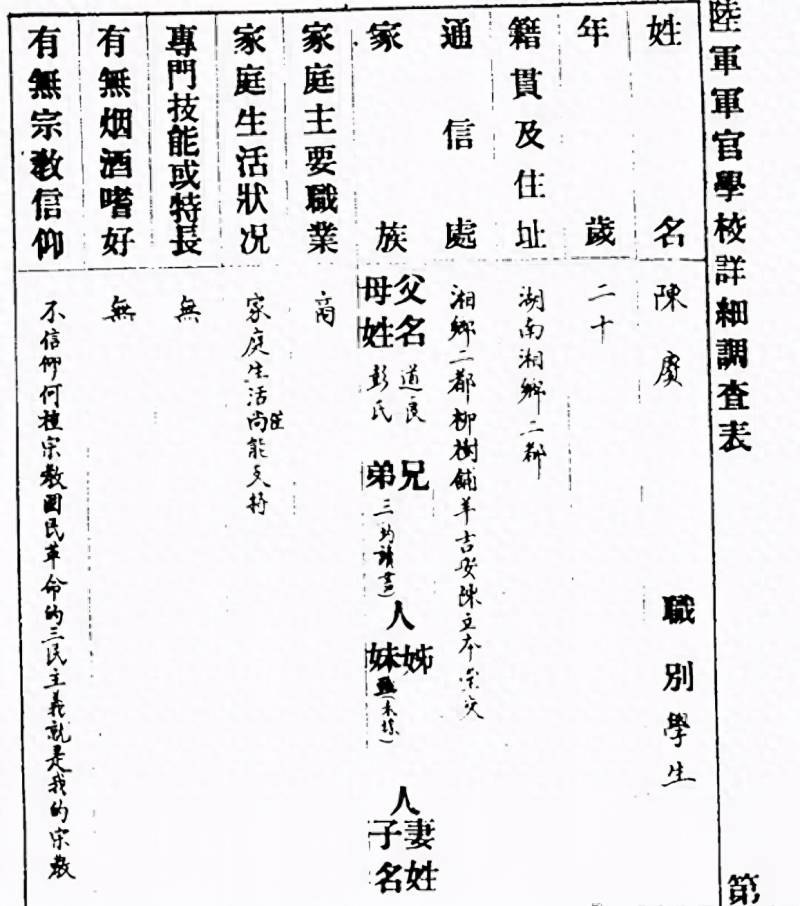 陸軍軍官學校詳細調查表 第
姓名 陳賡 職別 學生
年歲 二十
籍貫及住址 湖南湘鄉二都
通信處 湘鄉二都柳樹鋪羊吉安陳立本堂交
家族 父名 道良 兄 人 姊 人 妻姓
母姓 彭氏 弟 三(均讀書) 妹 子名
家庭主要職業 商
家庭生活狀况 家庭生活尚能支持
專門技能或特長 無
有無烟酒嗜好 無
有無宗教信仰 不信仰何種宗教國民革命的三民主義就是我的宗教